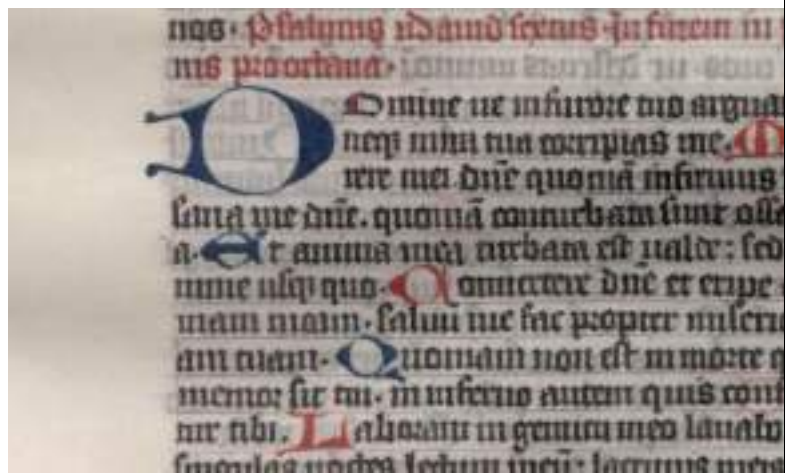 nos. Psalmus David sextus. In finem in
nis pro octava.
Domine ne in furore tuo argua
neq mihi tua corripias me. M
rere mei dñe quoniã infirmus
sana me dñe. quoniã conturbata sunt ossa
a. Et anima mea turbata est valde: sed
mine usq quo. Convertere dñe et eripe
mam meam. salvũ me fac propter miseri
am tuam. Quoniam non est in morte q
memor sit tui. in inferno autem quis conf
tur tibi. Laboravi in gemitu meo lavabo
singulas noctes lectum meũ: lacrimis meis